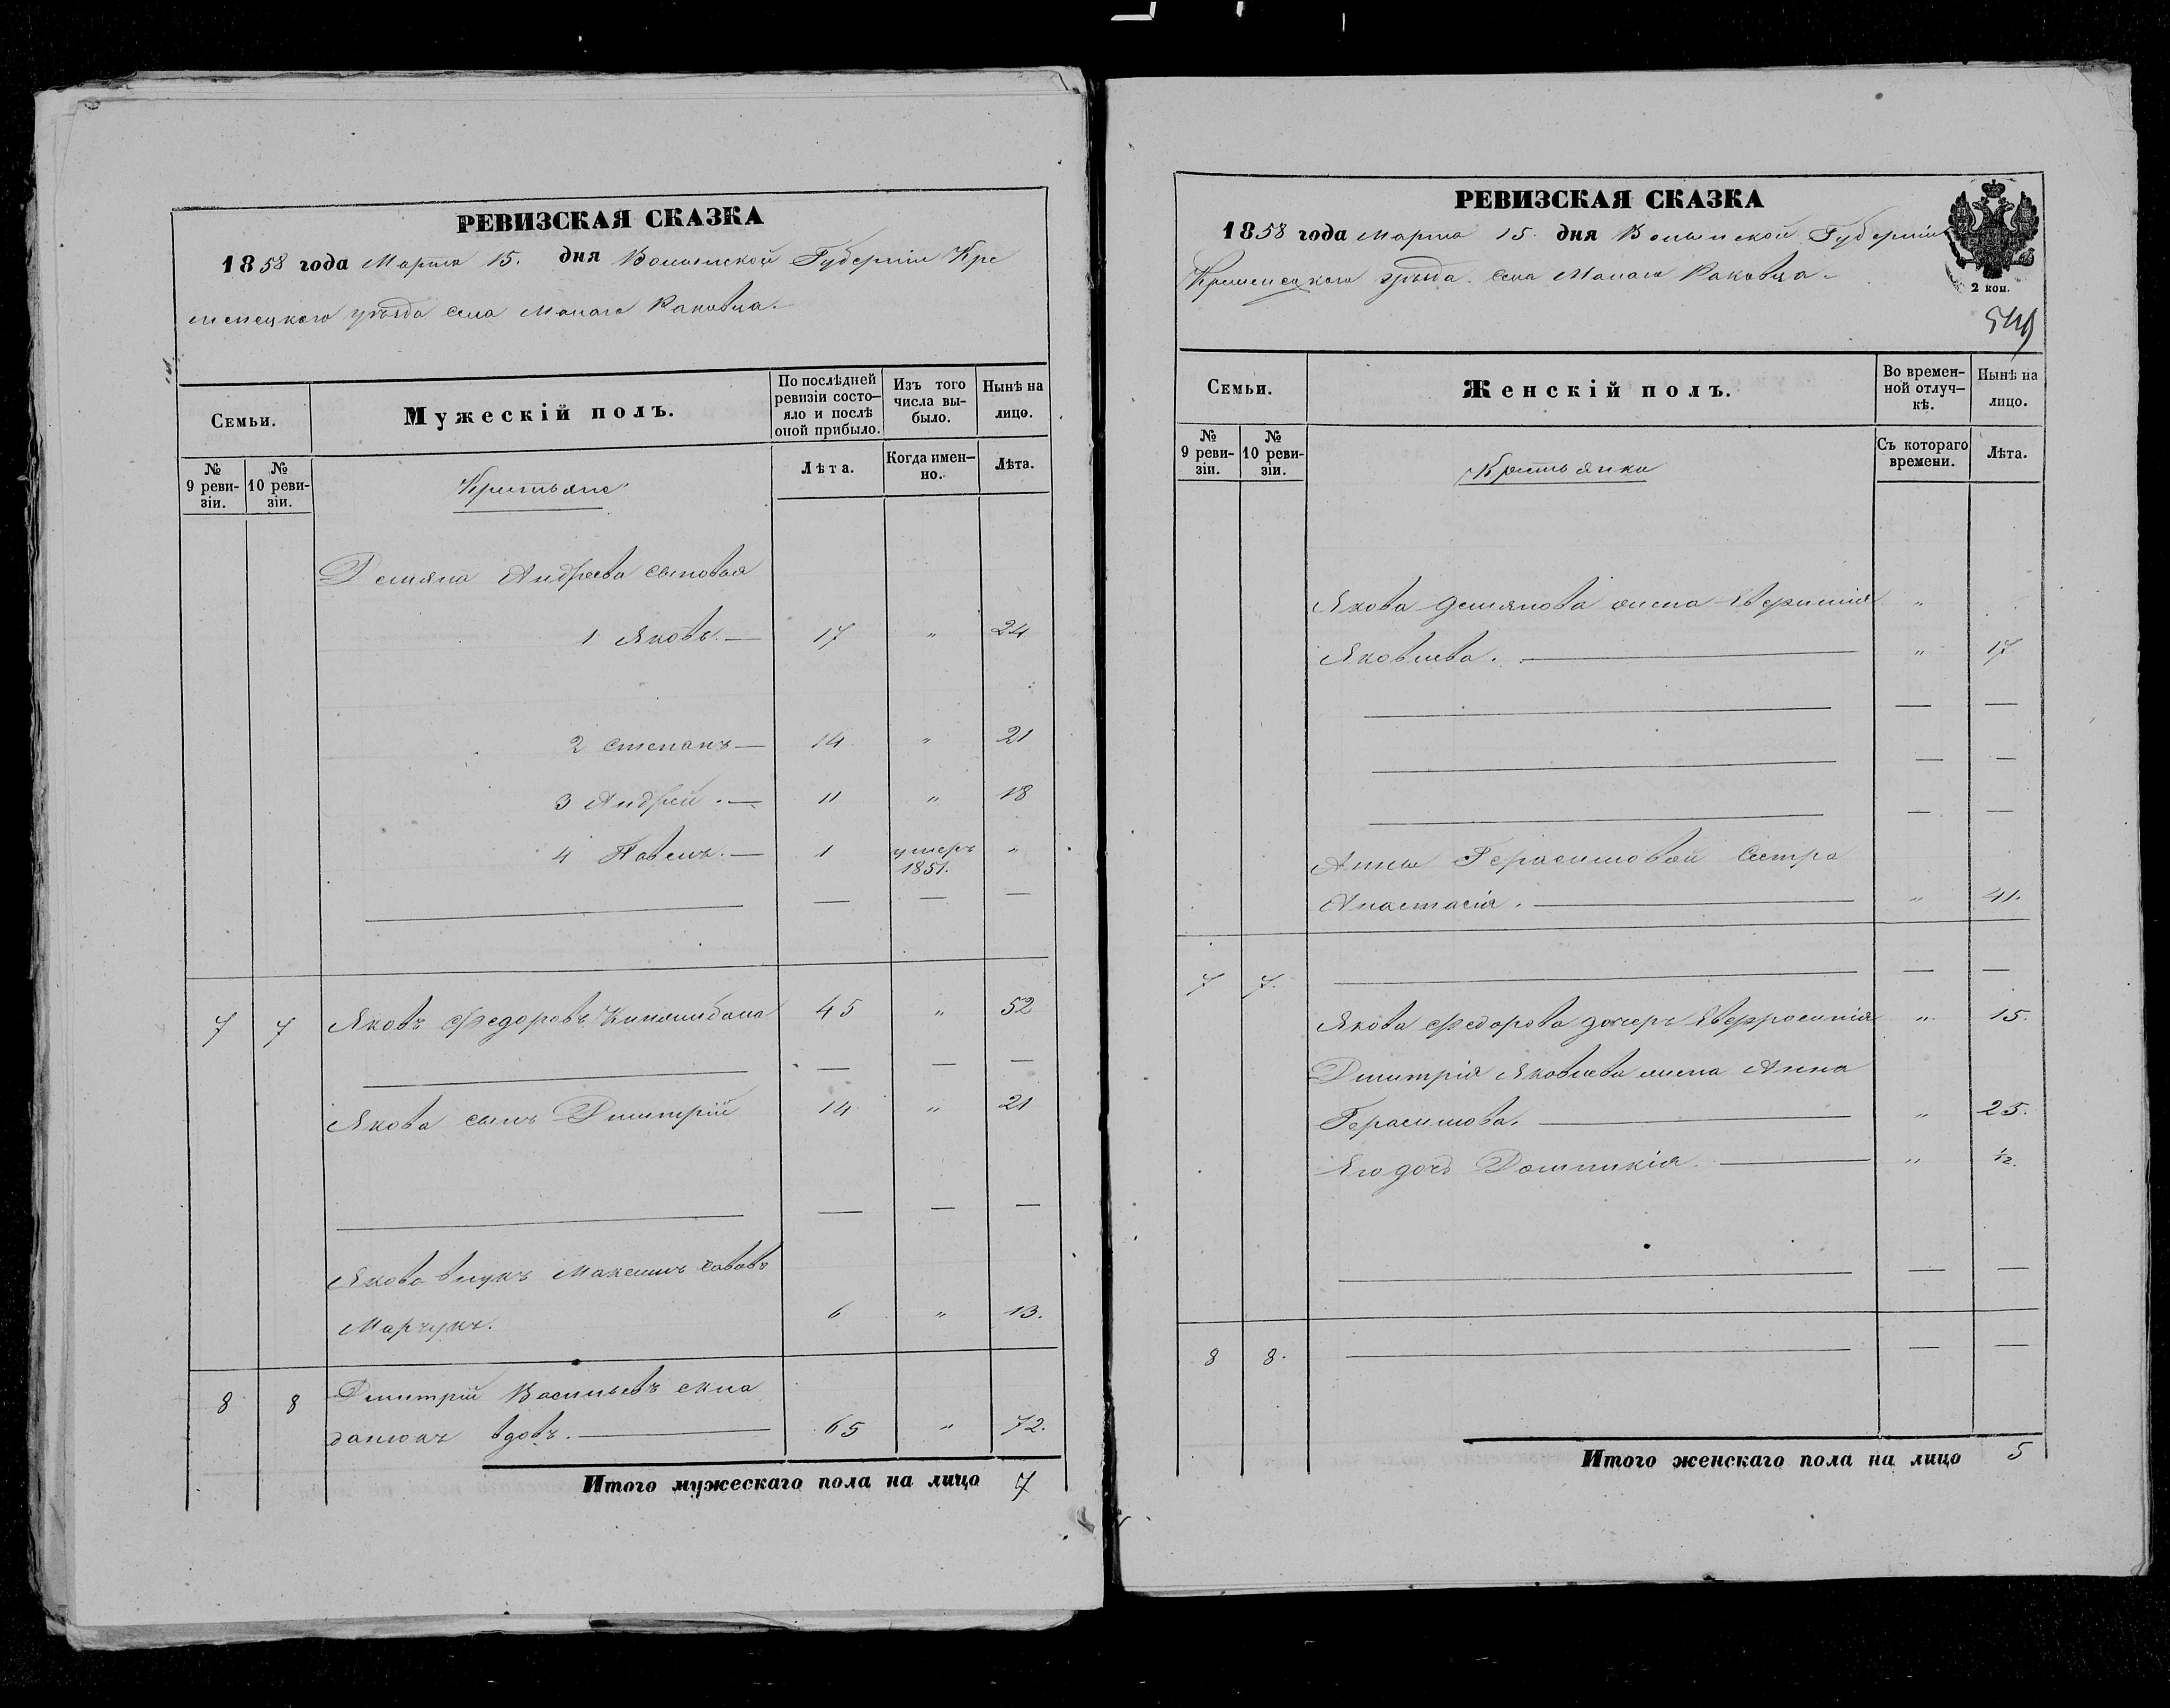 РЕВИЗСКАЯ СКАЗКА
1858 года Марта 15. дня Волынской Губерніи Кре
менецкого уѣзда села Малаго Раковца.
Семьи.
Мужескій полъ.
По послѣдней ревизіи состо-
яло и послѣ
оной прибыло.
Изъ того
числа вы-
было.
Нынѣ на
лицо.
№
9 реви-
зіи.
№
10 реви-
зіи.
Крестьяне
Лѣта.
Когда имен-
но.
Лѣта.
Демяна Андреева сыновья
1 Яковъ. — 17 " 24
2 Степанъ — 14 " 21
3 Андрей. — 11 " 18
4 Павелъ. — 1 умеръ 1851. "
7 7 Яковъ Федоровъ 45 " 52
Якова сынъ Дмитрій 14 " 21
Якова внукъ Максимъ Савовъ
Марчукъ. 6 " 13.
8 8 Дмитрій Васильевъ
вдовъ. 65 " 72.
Итого мужескаго пола на лицо 7
РЕВИЗСКАЯ СКАЗКА
1858 года Марта 15. дня Волынской Губерніи
Кременецкого уѣзда села Малаго Раковца
2 коп.
Семьи.
Женскій полъ.
Во времен-
ной отлуч-
кѣ.
Нынѣ на
лицо.
№
9 реви-
зіи.
№
10 реви-
зіи.
Крестьянки
Съ котораго
времени.
Лѣта.
Якова Демянова жена "
Яковлева. " 17
Анны Герасимовой Сестра
Анастасія. " 41.
7 7.
Якова Федорова дочерь Евфросинія " 15.
Дмитрія Яковлева жена Анна
Герасимова. " 25.
Его дочь Домникія. " ½.
8 8.
Итого женскаго пола на лицо 5